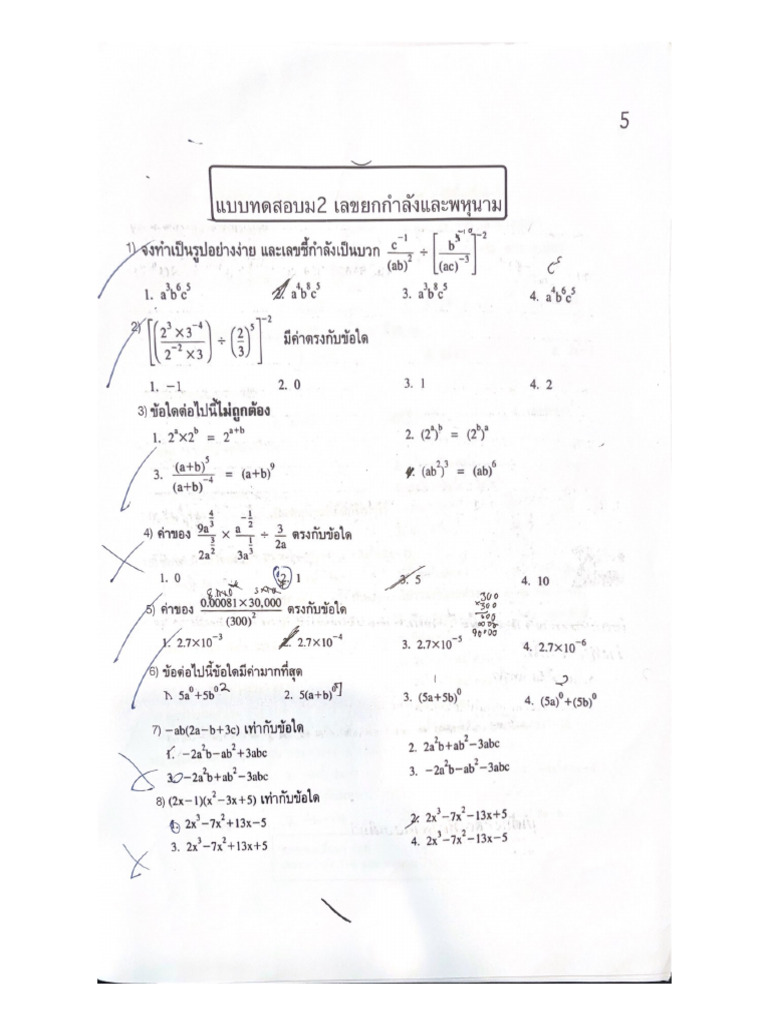 5
แบบทดสอบม2 เลขยกกำลังและพหุนาม
1) จงทำเป็นรูปอย่างง่าย และเลขชี้กำลังเป็นบวก c⁻¹/(ab)² ÷ [b³/(ac)⁻³]⁻²
1. a³b⁶c⁵ 2. a⁴b⁸c⁵ 3. a³b⁸c⁵ 4. a⁴b⁶c⁵
2) [((2³×3⁻⁴)/(2⁻²×3)) ÷ (2/3)⁵]⁻² มีค่าตรงกับข้อใด
1. −1 2. 0 3. 1 4. 2
3) ข้อใดต่อไปนี้ไม่ถูกต้อง
1. 2ᵃ×2ᵇ = 2ᵃ⁺ᵇ 2. (2ᵃ)ᵇ = (2ᵇ)ᵃ
3. (a+b)⁵/(a+b)⁻⁴ = (a+b)⁹ 4. (ab²)³ = (ab)⁶
4) ค่าของ 9a^(4/3)/2a^(3/2) × a^(−1/2)/3a^(1/3) ÷ 3/2a ตรงกับข้อใด
1. 0 2. 1 3. 5 4. 10
5) ค่าของ (0.00081×30,000)/(300)² ตรงกับข้อใด
300
×300
90000
1. 2.7×10⁻³ 2. 2.7×10⁻⁴ 3. 2.7×10⁻⁵ 4. 2.7×10⁻⁶
6) ข้อต่อไปนี้ข้อใดมีค่ามากที่สุด
1. 5a⁰+5b⁰ 2. 5(a+b)⁰ 3. (5a+5b)⁰ 4. (5a)⁰+(5b)⁰
7) −ab(2a−b+3c) เท่ากับข้อใด
1. −2a²b−ab²+3abc 2. 2a²b+ab²−3abc
3. −2a²b+ab²−3abc 3. −2a²b−ab²−3abc
8) (2x−1)(x²−3x+5) เท่ากับข้อใด
1. 2x³−7x²+13x−5 2. 2x³−7x²−13x+5
3. 2x³−7x²+13x+5 4. 2x³−7x²−13x−5